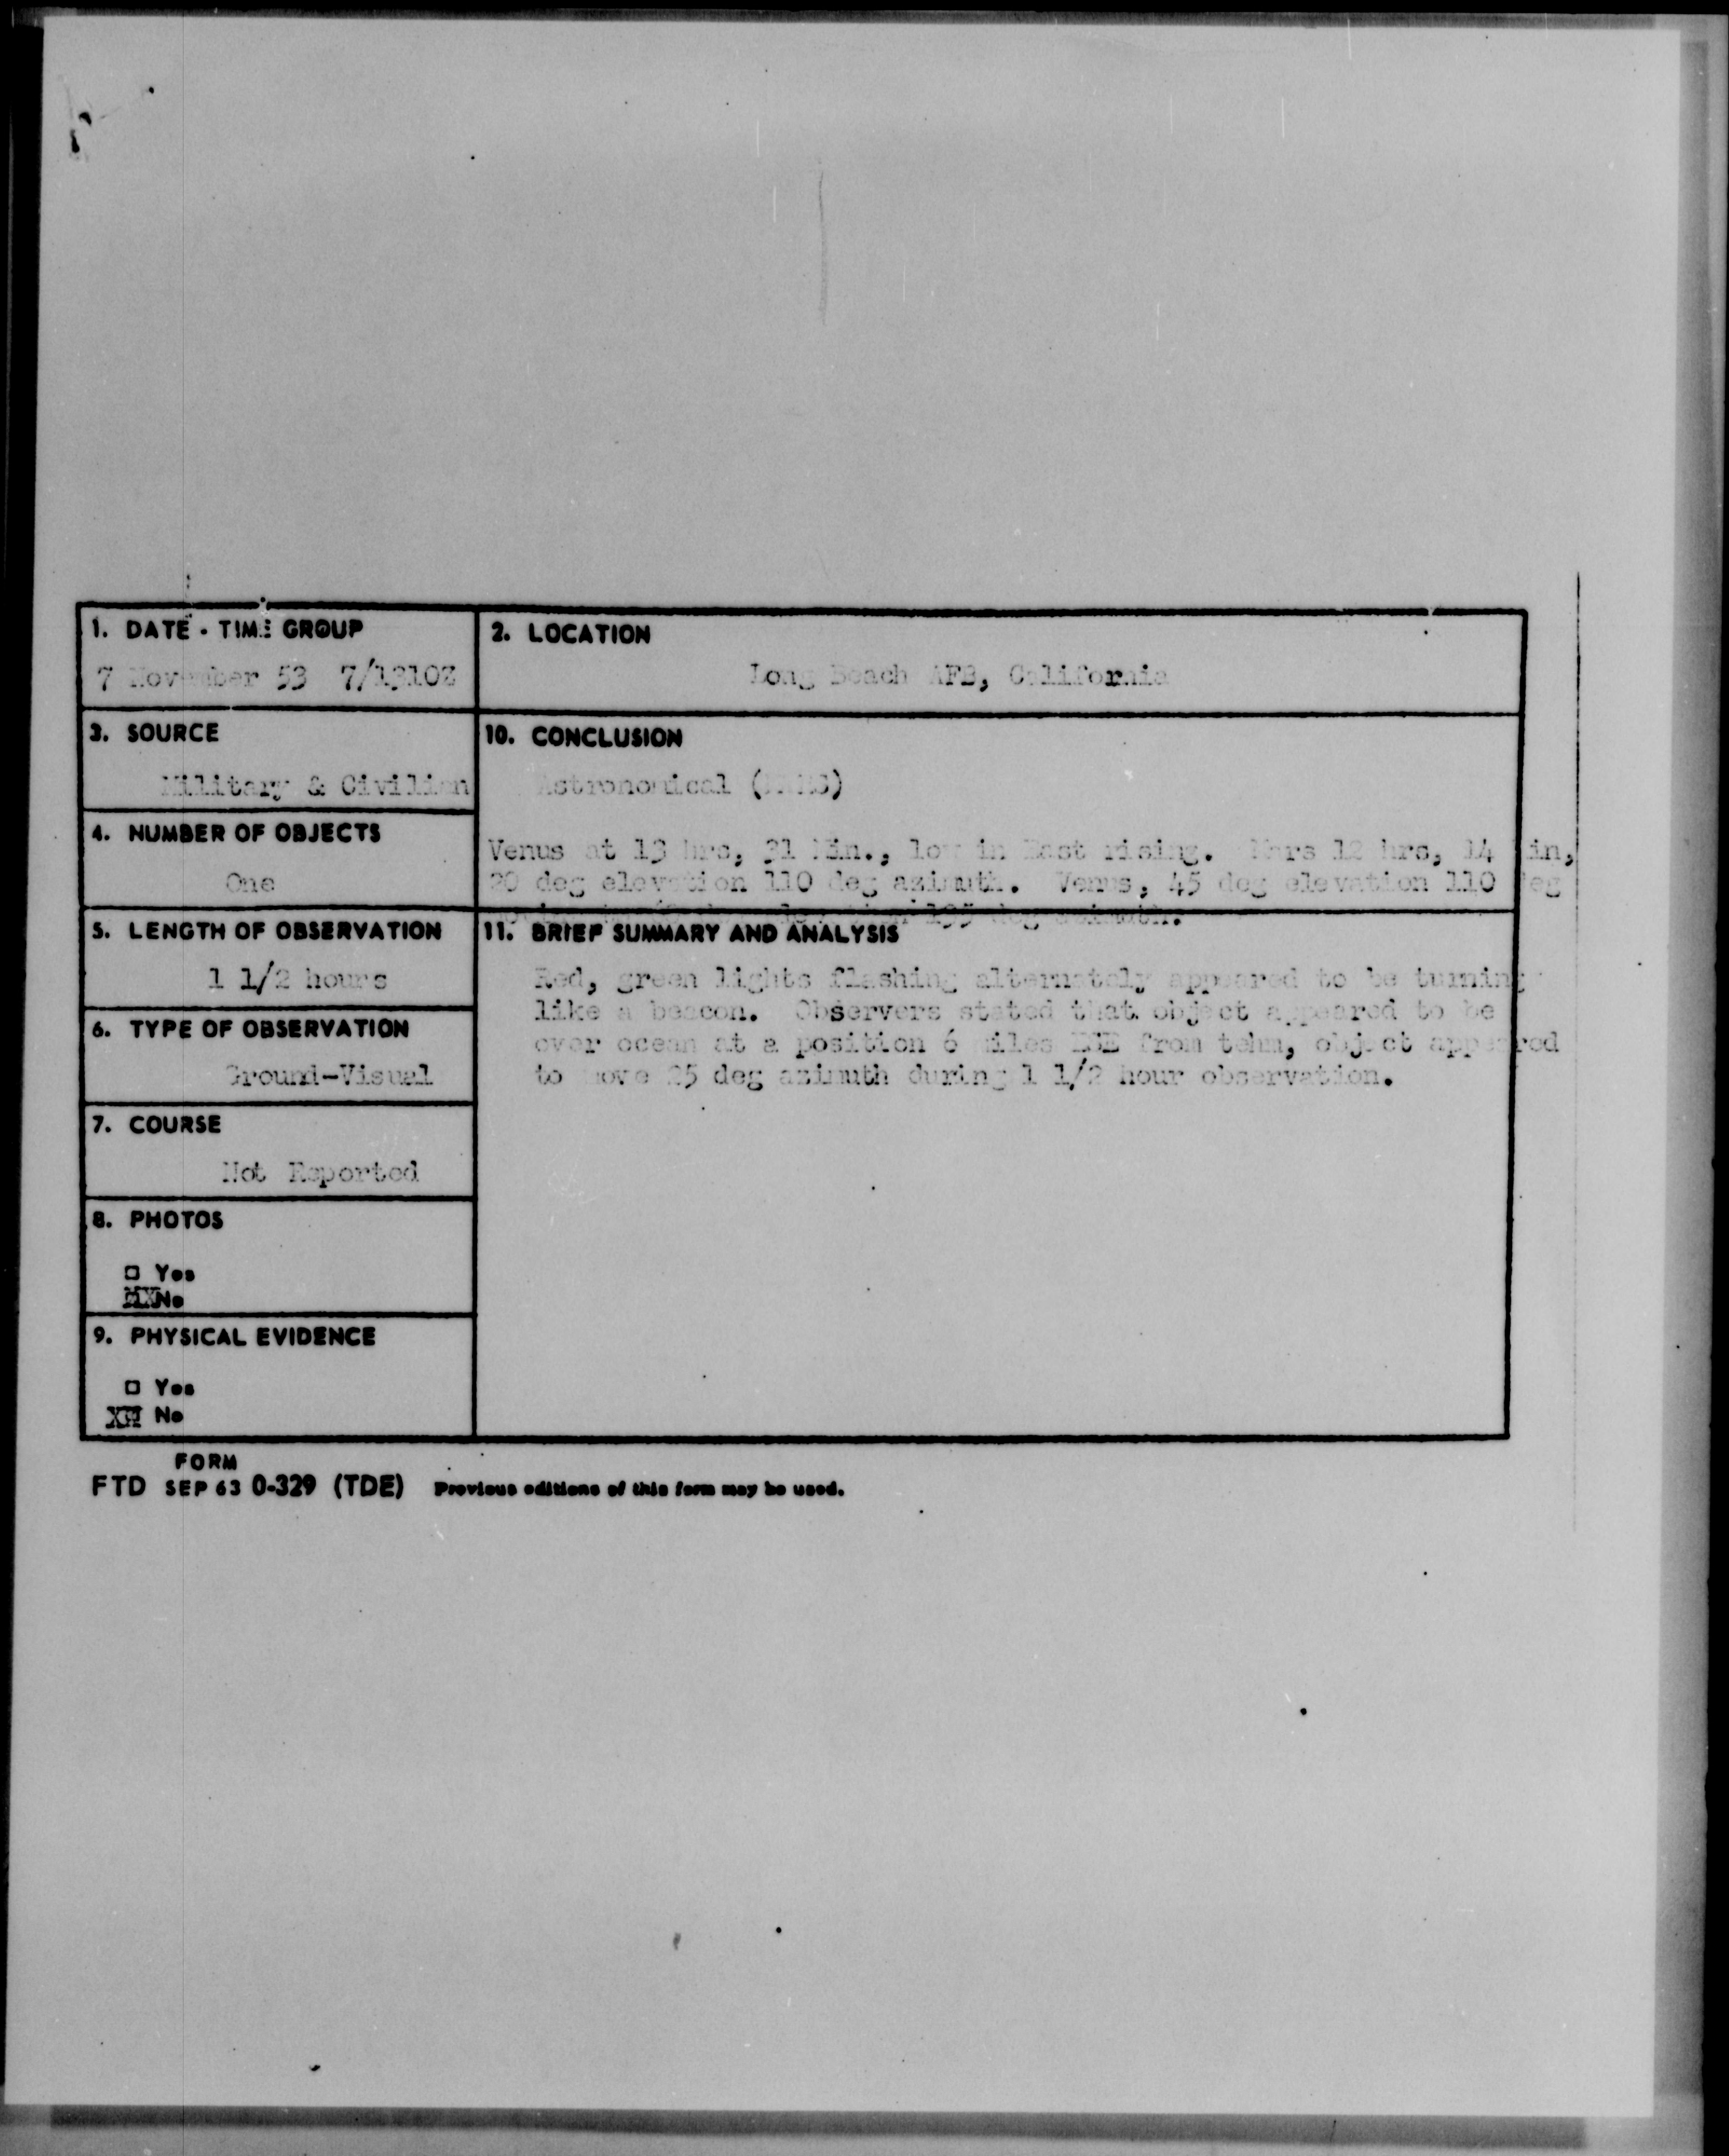 1. DATE - TIME GROUP
7 November 53 7/1310Z
2. LOCATION
Long Beach AFB, California
3. SOURCE
Military & Civilian
10. CONCLUSION
Astronomical
4. NUMBER OF OBJECTS
One
Venus at 13 hrs, 31 Min., low in East rising. Mars 12 hrs, 14 Min,
20 deg elevation 110 deg azimuth. Venus, 45 deg elevation 110 deg
deg azimuth.
5. LENGTH OF OBSERVATION
1 1/2 hours
6. TYPE OF OBSERVATION
Ground-Visual
7. COURSE
Not Reported
8. PHOTOS
□ Yes
No
9. PHYSICAL EVIDENCE
□ Yes
No
11. BRIEF SUMMARY AND ANALYSIS
Red, green lights flashing alternately appeared to be turning
like a beacon. Observers stated that object appeared to be
over ocean at a position 6 miles from tehm, object appeared
to move 25 deg azimuth during 1 1/2 hour observation.
FORM
FTD SEP 63 0-329 (TDE) Previous editions of this form may be used.